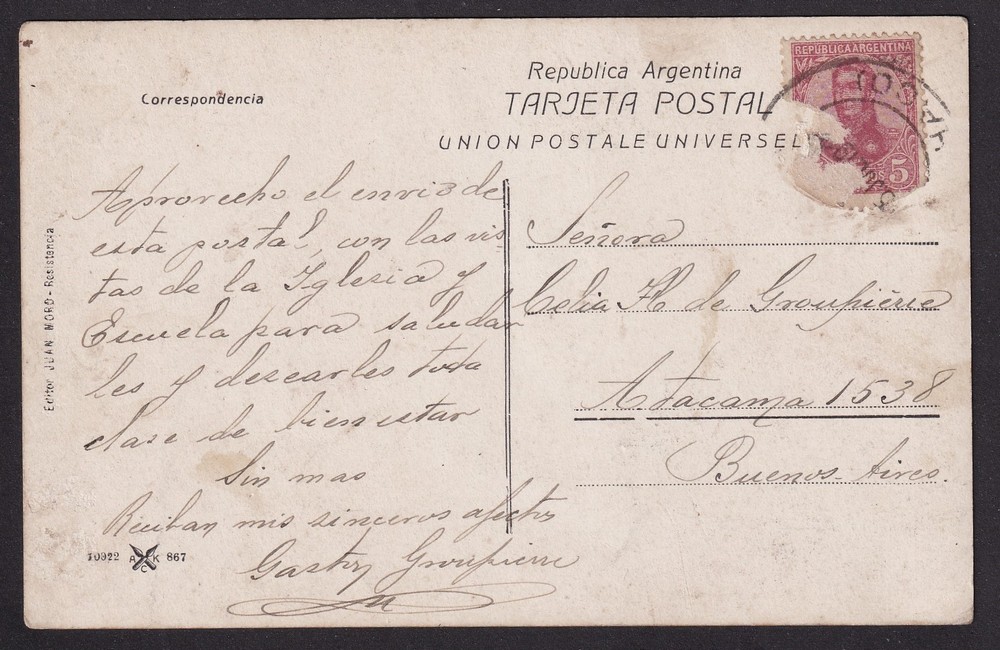 Correspondencia
Republica Argentina
TARJETA POSTAL
UNION POSTALE UNIVERSEL
REPUBLICA ARGENTINA
5
Aprovecho el envio de
esta postal, con las vis
tas de la Yglesia y
Escuela para saludar
les y desearles toda
clase de bienestar
Sin mas
Reciban mis sinceros afectos
Gastón Groupierre
Señora
Celia H de Groupiérre
Atacama 1538
Buenos-Aires.
Editor JUAN MORO-Resistencia
10922 A C K 867